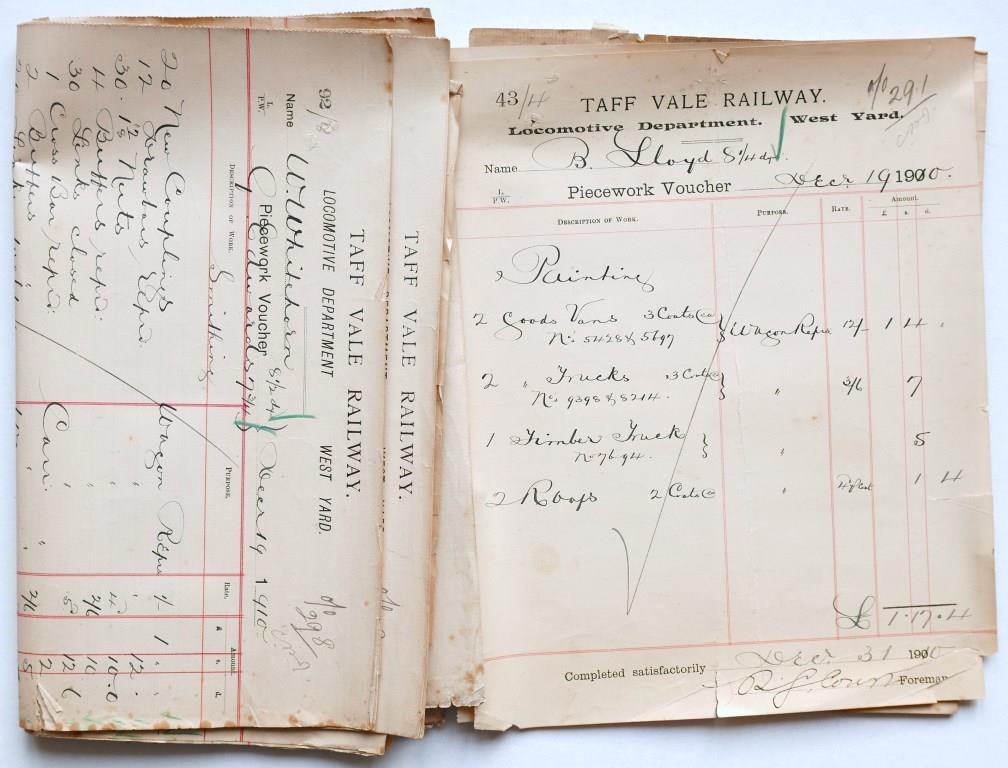 43/4
TAFF VALE RAILWAY.
Locomotive Department. West Yard.
Name B. Lloyd 8 1/4 dys.
L. P.W. Piecework Voucher Decr. 19 1900.
Description of Work. Purpose. Rate. Amount.
£ s. d.
Painting
2 Goods Vans 3 Coats Wagon Reprs 12/- 1 4 "
Nos 5428 & 5697
2 " Trucks 3 Coats " 3/6 7
Nos 9398 & 8214.
1 Timber Truck " 5
No 7694.
2 Roofs 2 Coats " 1 4
£ 1.17.4
Completed satisfactorily Decr. 31 1900
Foreman
TAFF VALE RAILWAY.
TAFF VALE RAILWAY.
LOCOMOTIVE DEPARTMENT WEST YARD.
92/
Name W. Whitehorn 8 1/2 dys
L. P.W. Piecework Voucher Decr 19 1910
Edwards 7 3/4
Description of Work. Purpose. Rate. Amount.
£ s. d.
Smithing
20 New Couplings Wagon Reprs 1/- 1 " "
12 Drawbars Repd. " 12 "
30. Nuts
4 Buffers repd. " 10.0
30 Links closed " 10
1 Cross Bar repd. Carr. 2
2 Buffers " 2/6 5